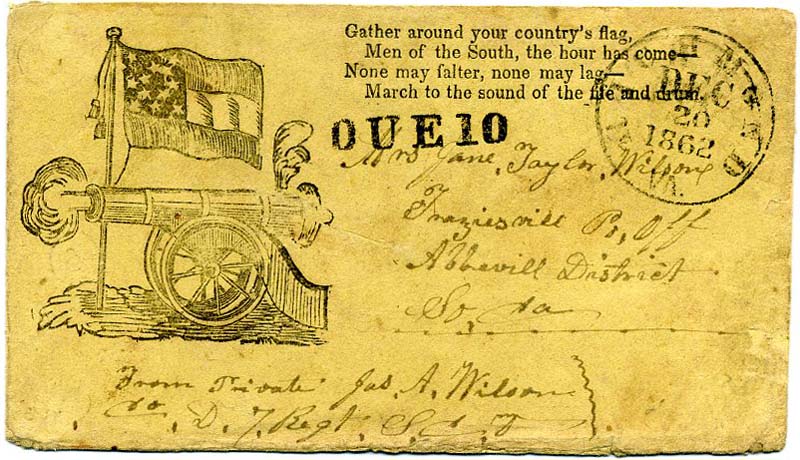 Gather around your country's flag,
Men of the South, the hour has come—
None may falter, none may lag—
March to the sound of the fife and drum.
RICHMOND VA.
DEC
20
1862
DUE 10
Mrs Jane, Taylor, Wilson
Fraziesvill Po, Off
Abbevill District
So Ca
From Private Jas, A, Wilson
Co, D, 7, Regt, S, C, V